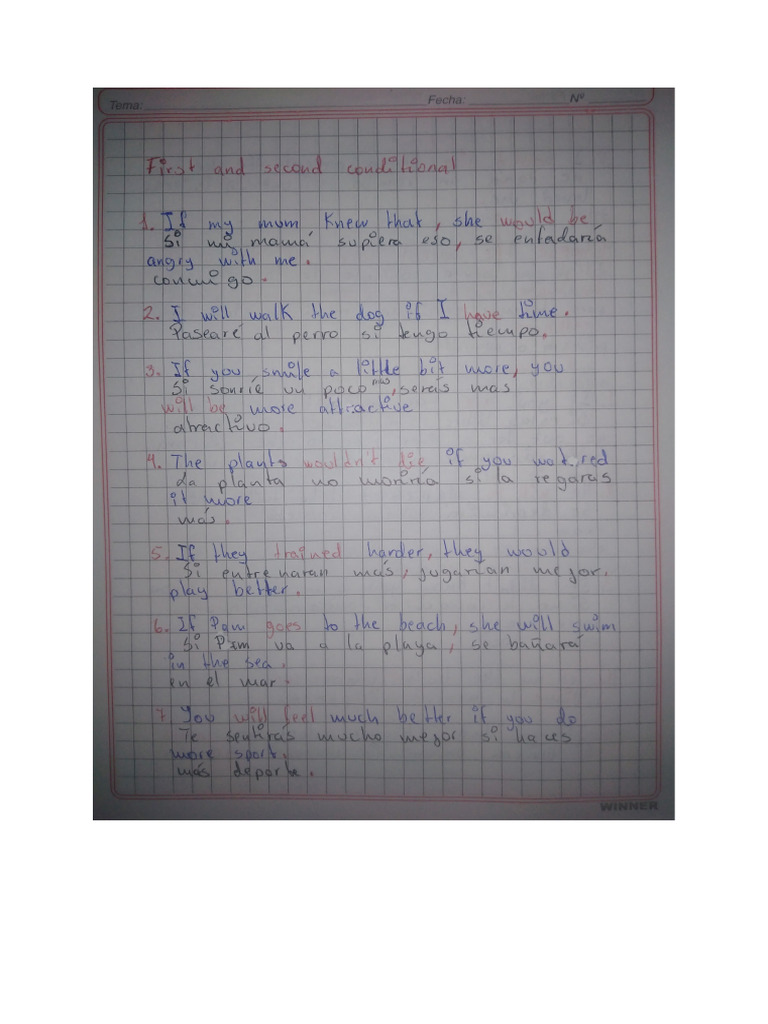 Tema: Fecha: Nº
First and second conditional
1. If my mum knew that, she would be
Si mi mamá supiera eso, se enfadaría
angry with me.
conmigo.
2. I will walk the dog if I have time.
Pasearé al perro si tengo tiempo.
3. If you smile a little bit more, you
Si sonríe un poco más, serás mas
will be more attractive
atractivo.
4. The plants wouldn't die if you watered
La planta no moriría si la regaras
it more
más.
5. If they trained harder, they would
Si entrenaran más, jugarían mejor.
play better.
6. If Pam goes to the beach, she will swim
Si Pam va a la playa, se bañará
in the sea.
en el mar.
7. You will feel much better if you do
Te sentirás mucho mejor si haces
more sport.
más deporte.
WINNER